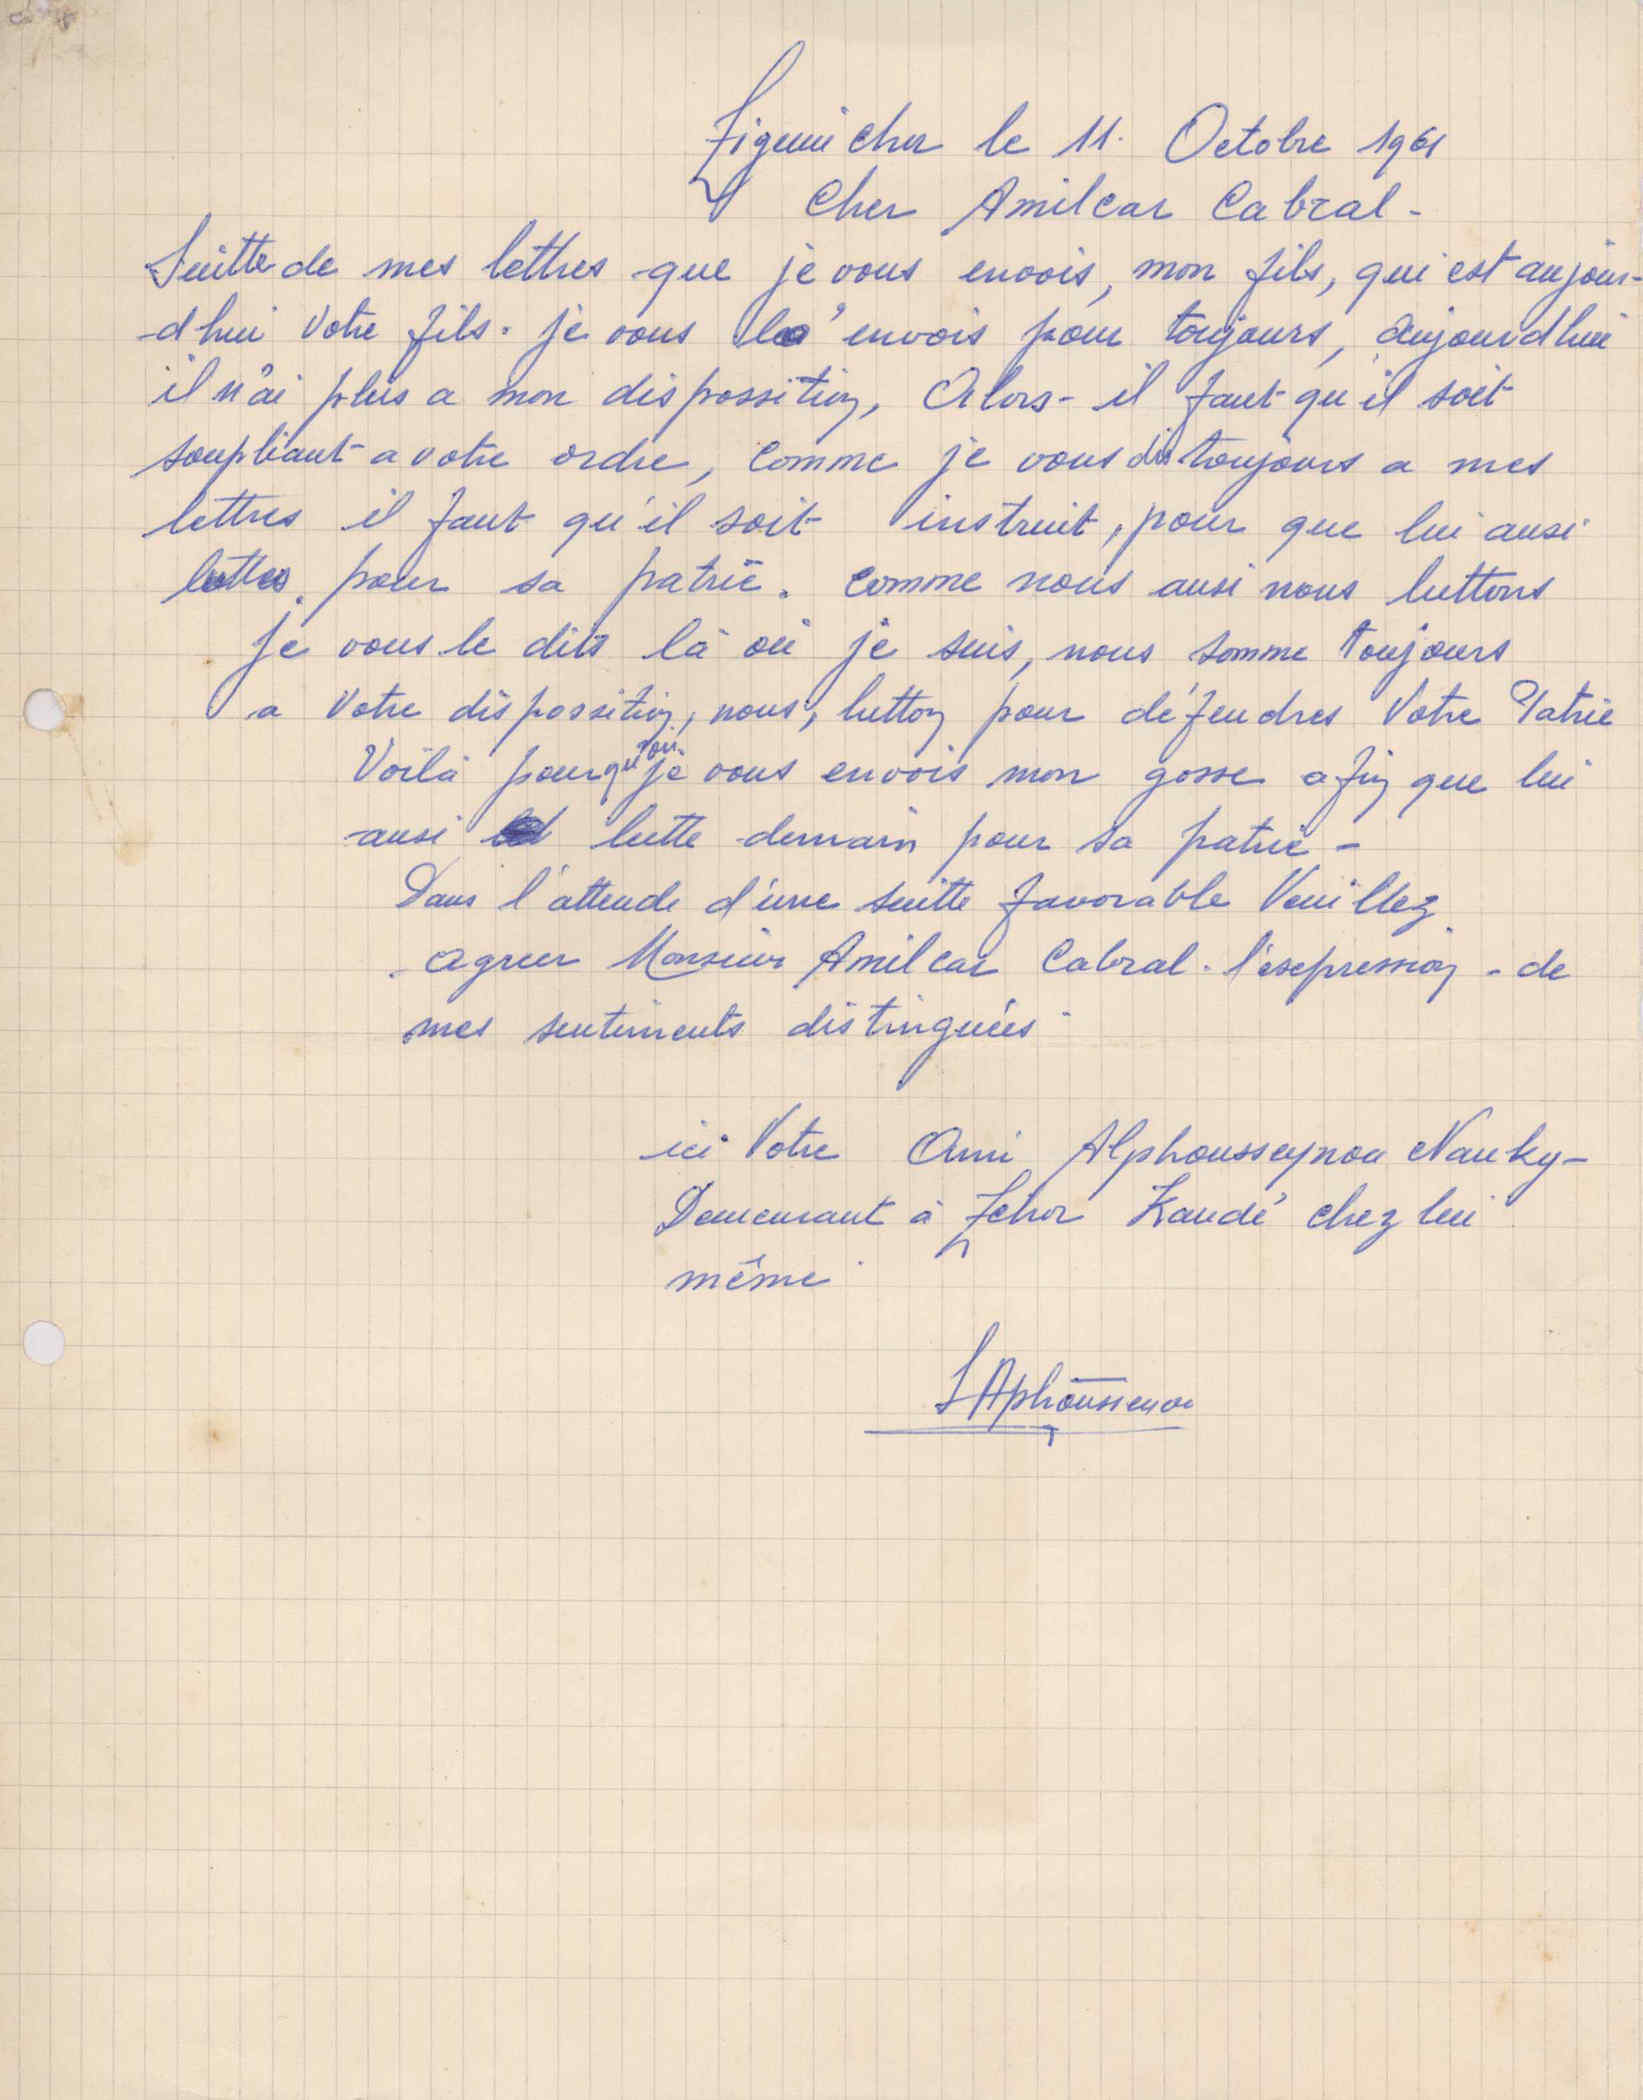 Ziguinchor le 11. Octobre 1961
Cher Amilcar Cabral -
Suitte de mes lettres que je vous envois, mon fils, qui est aujour-
-dhui Votre fils. je vous l'envois pour toujours, aujourdhui
il n'ai plus a mon dispossition, Alors - il faut qu'il soit
soupliant a votre ordre, Comme je vous dis toujours a mes
lettres il faut qu'il soit instruit, pour que lui ausi
luttes pour sa patrie. Comme nous ausi nous luttons
Je vous le dits là où je suis, nous somme toujours
a Votre dispossition, nous, lutton pour défendres Votre Patrie
Voilà pourquoi je vous envois mon gosse afin que lui
ausi lutte demain pour sa patrie -
Dans l'attende d'une suitte favorable Veuillez
agreer Monsieur Amilcar Cabral. l'esepression - de
mes sentiments distinguées -
ici Votre Ami Alphousseynou Nanky -
Demeurant à Kandé chez lui
même